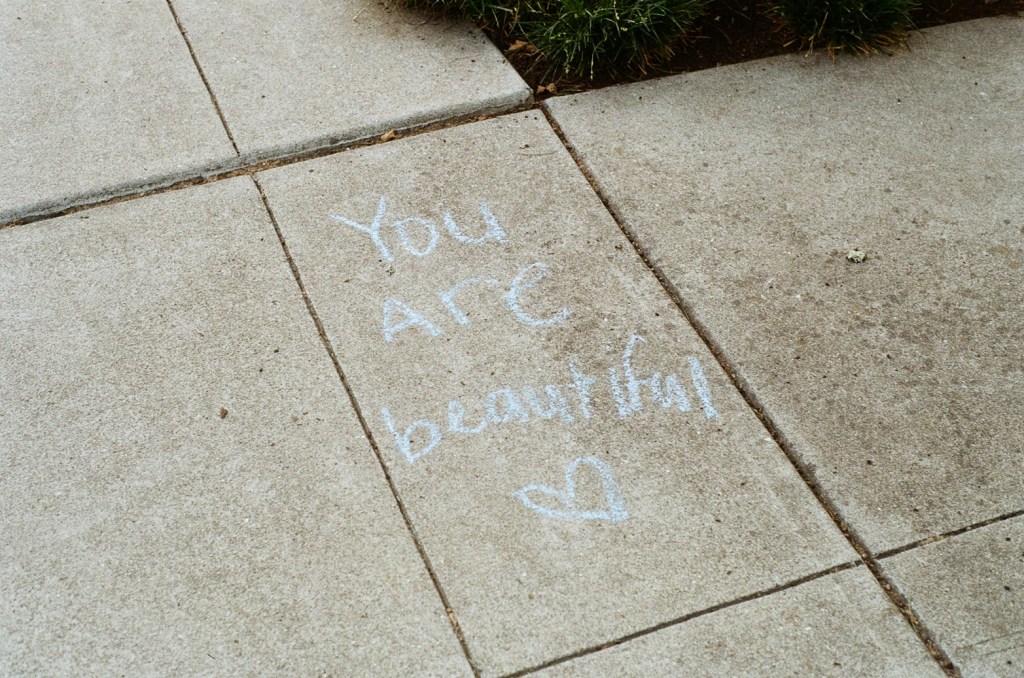 You
Are
beautiful